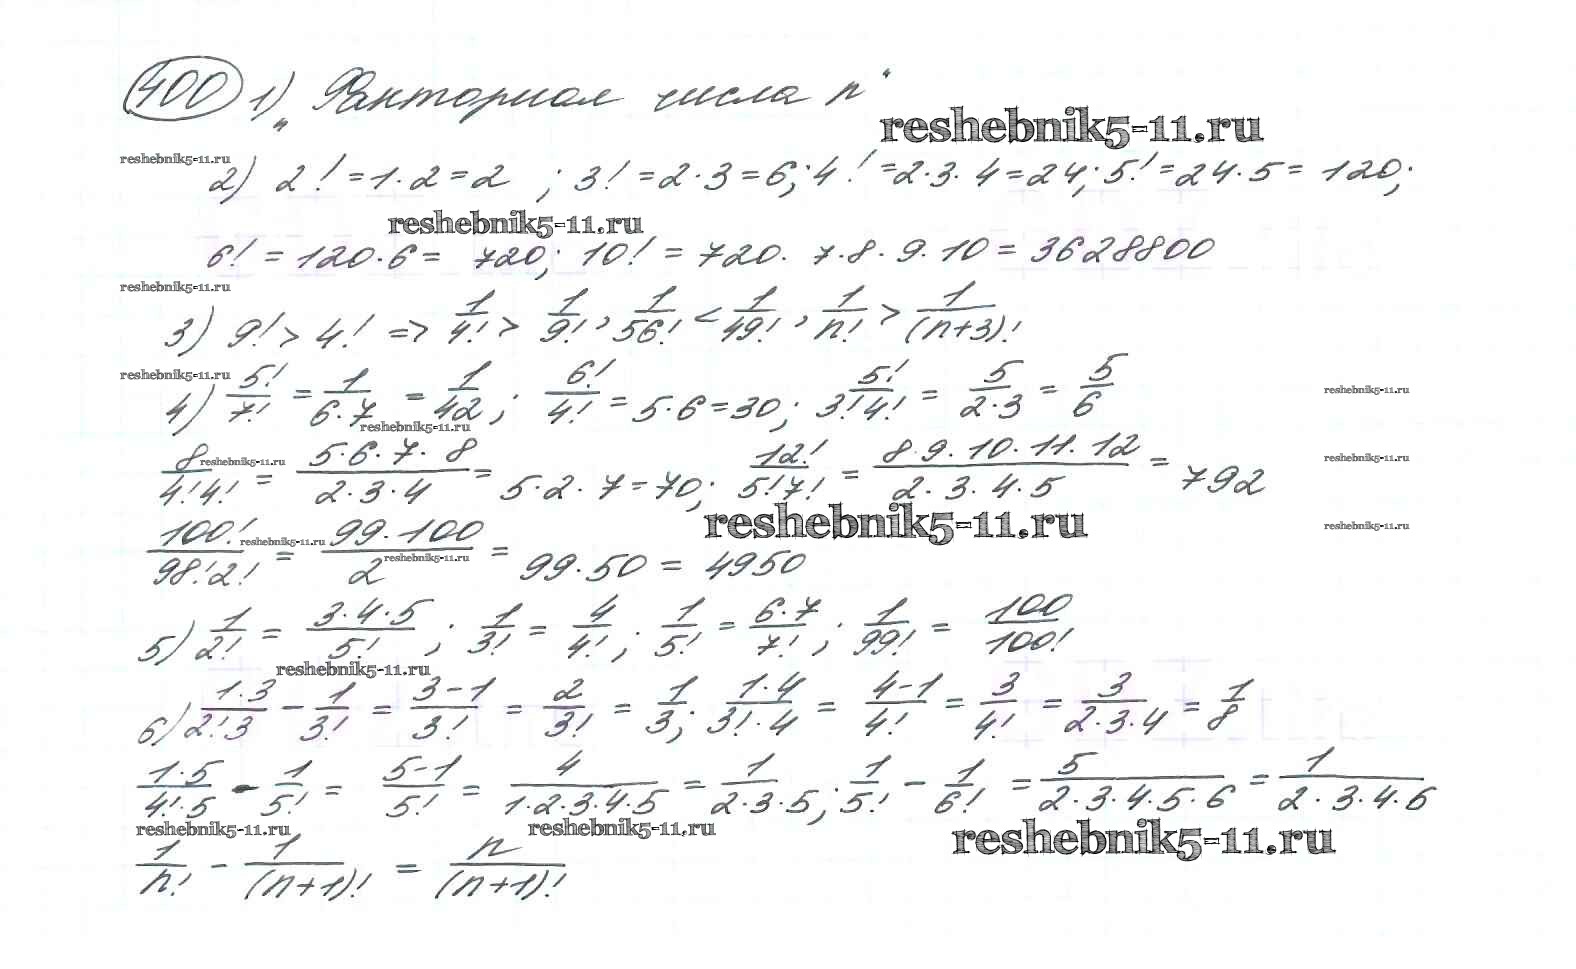 400 1) „Факториал числа n“
reshebnik5-11.ru
reshebnik5-11.ru
2) 2! = 1·2 = 2 ; 3! = 2·3 = 6; 4! = 2·3·4 = 24; 5! = 24·5 = 120;
reshebnik5-11.ru
6! = 120·6 = 720; 10! = 720·7·8·9·10 = 3628800
reshebnik5-11.ru
3) 9! > 4! => 1/4! > 1/9!, 1/56! < 1/49!, 1/n! > 1/(n+3)!
reshebnik5-11.ru
4) 5!/7! = 1/(6·7) = 1/42; 6!/4! = 5·6 = 30; 5!/(3!4!) = 5/(2·3) = 5/6
reshebnik5-11.ru
reshebnik5-11.ru
8/(4!4!) = (5·6·7·8)/(2·3·4) = 5·2·7 = 70; 12!/(5!7!) = (8·9·10·11·12)/(2·3·4·5) = 792
reshebnik5-11.ru
reshebnik5-11.ru
reshebnik5-11.ru
100!/(98!2!) = (99·100)/2 = 99·50 = 4950
reshebnik5-11.ru
reshebnik5-11.ru
reshebnik5-11.ru
5) 1/2! = (3·4·5)/5! ; 1/3! = 4/4! ; 1/5! = (6·7)/7! ; 1/99! = 100/100!
reshebnik5-11.ru
6) (1·3)/(2!·3) - 1/3! = (3-1)/3! = 2/3! = 1/3; (1·4)/(3!·4) = (4-1)/4! = 3/4! = 3/(2·3·4) = 1/8
(1·5)/(4!·5) - 1/5! = (5-1)/5! = 4/(1·2·3·4·5) = 1/(2·3·5); 1/5! - 1/6! = 5/(2·3·4·5·6) = 1/(2·3·4·6)
reshebnik5-11.ru
reshebnik5-11.ru
reshebnik5-11.ru
1/n! - 1/(n+1)! = n/(n+1)!